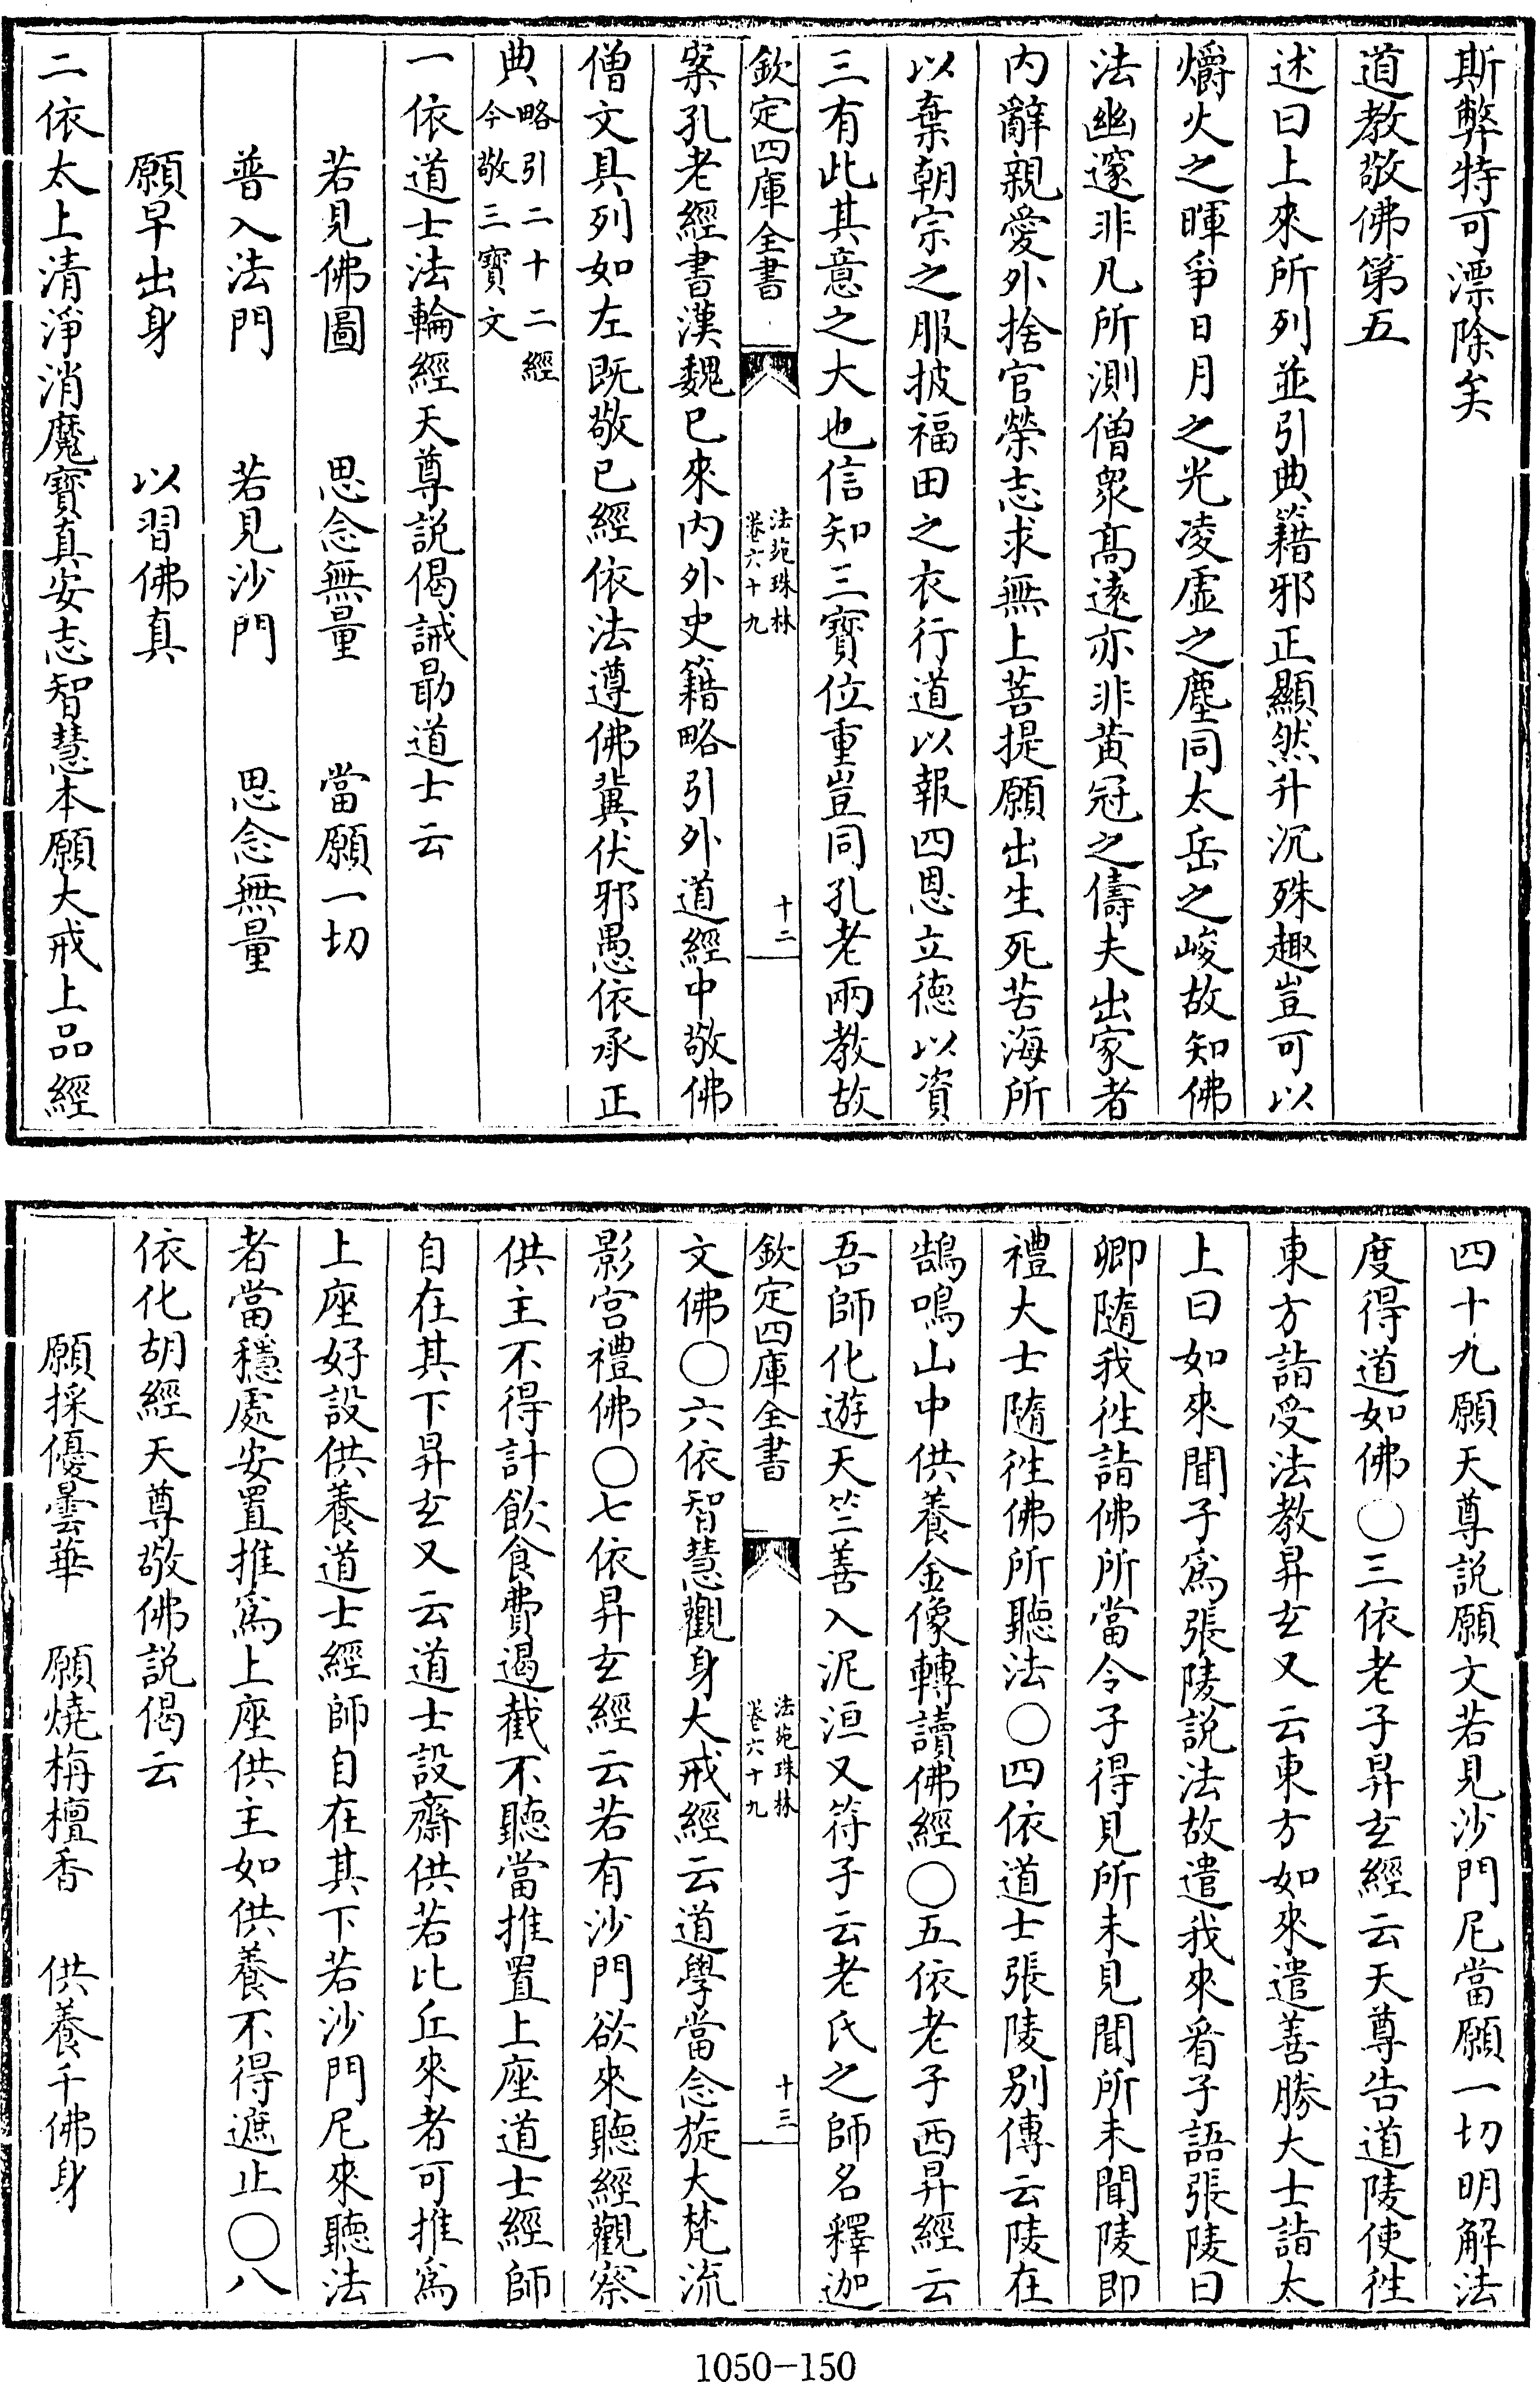 斯弊特可漂除矣
道教敬佛第五
述曰上來所列並引典籍邪正顯然升沉殊趣豈可以
爝火之暉爭日月之光凌虛之塵同太岳之峻故知佛
法幽邃非凡所測僧衆髙逺亦非黄冠之儔夫出家者
内辭親愛外捨官榮志求無上菩提願出生死苦海所
以棄朝宗之服披福田之衣行道以報四恩立德以資
三有此其意之大也信知三寶位重豈同孔老兩教故
欽定四庫全書
法苑珠林
卷六十九
十二
案孔老經書漢魏已來内外史籍略引外道經中敬佛
僧文具列如左既敬已經依法遵佛冀伏邪愚依承正
典略引二十二經
今敬三寶文
一依道士法輪經天尊説偈誡勗道士云
若見佛圖 思念無量 當願一切
普入法門 若見沙門 思念無量
願早出身 以習佛真
二依太上清淨消魔寶真安志智慧本願大戒上品經
四十九願天尊説願文若見沙門尼當願一切明解法
度得道如佛○三依老子昇玄經云天尊告道陵使徃
東方詣受法教昇玄又云東方如來遣善勝大士詣太
上曰如來聞子爲張陵説法故遣我來㸔子語張陵曰
卿隨我徃詣佛所當令子得見所未見聞所未聞陵即
禮大士隨徃佛所聽法○四依道士張陵别傳云陵在
鵠鳴山中供養金像轉讀佛經○五依老子西昇經云
吾師化遊天竺善入泥洹又符子云老氏之師名釋迦
欽定四庫全書
法苑珠林
卷六十九
十三
文佛○六依智慧觀身大戒經云道學當念旋大梵流
影宫禮佛○七依昇玄經云若有沙門欲來聽經觀察
供主不得計飲食費遏截不聽當推置上座道士經師
自在其下昇玄又云道士設齋供若比丘來者可推爲
上座好設供養道士經師自在其下若沙門尼來聽法
者當穩處安置推爲上座供主如供養不得遮止○八
依化胡經天尊敬佛説偈云
願採優曇華 願燒栴檀香 供養千佛身
1050-150